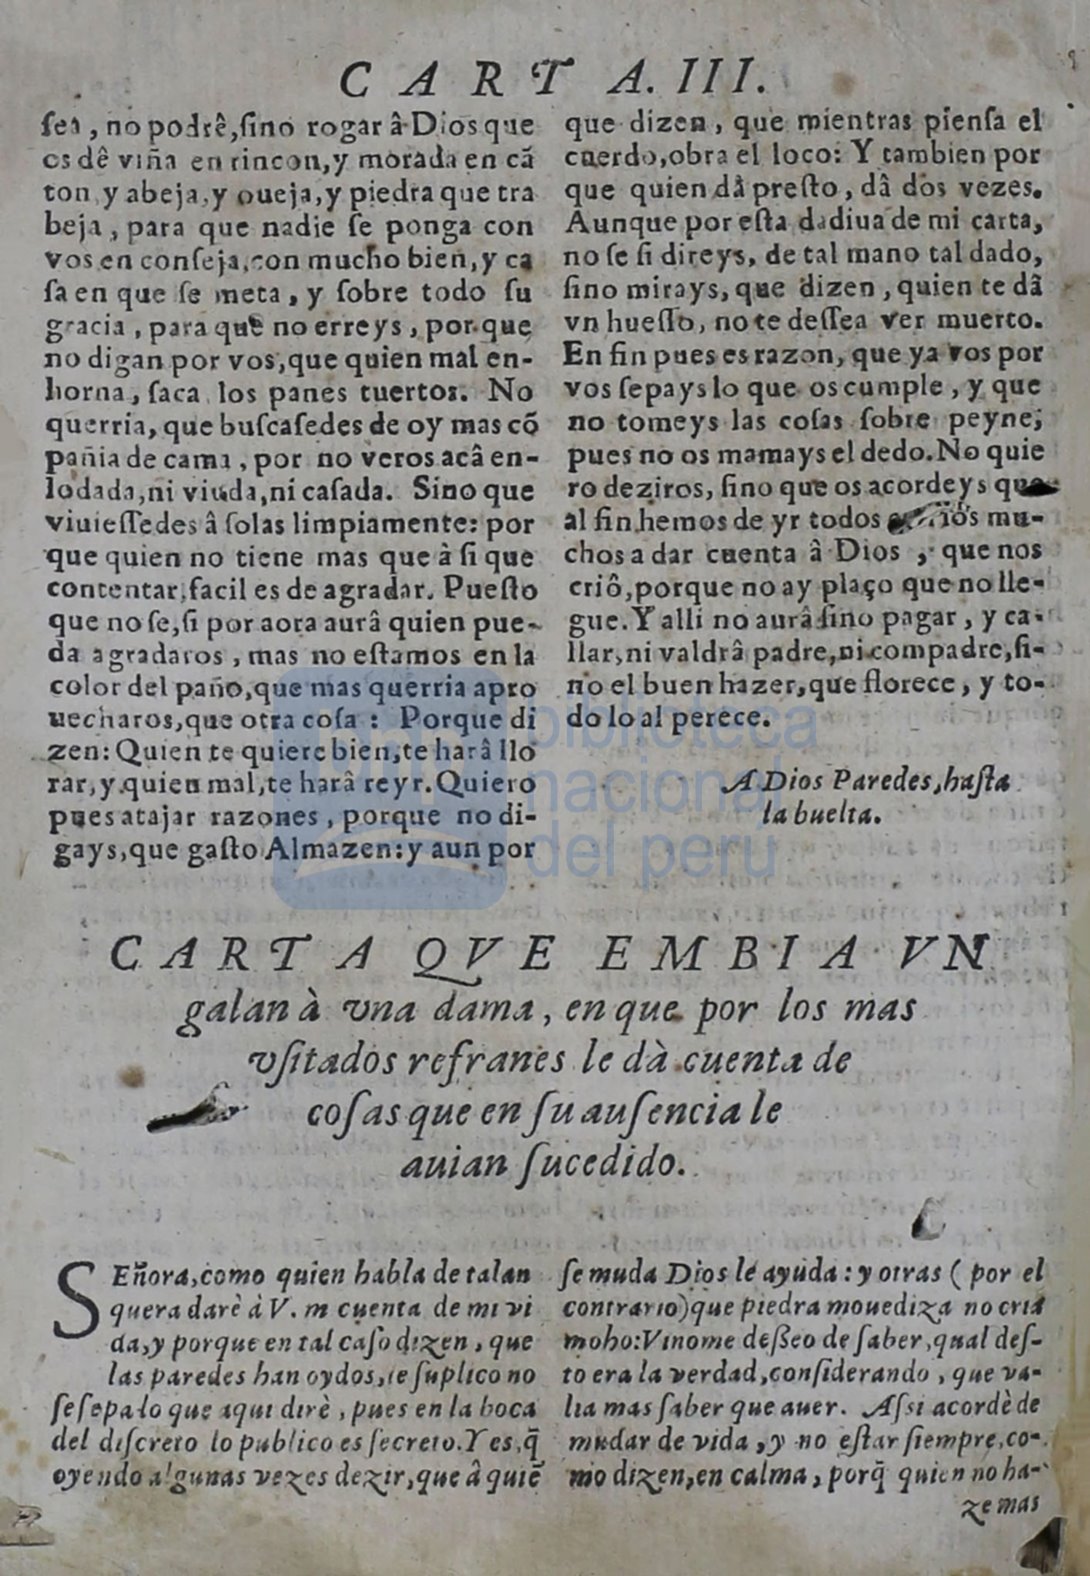 CARTA. III.
sea, no podrê, sino rogar â Dios que
os dê viña en rincon, y morada en cã
ton, y abeja, y oueja, y piedra que tra
beja, para que nadie se ponga con
vos en conseja, con mucho bien, y ca
sa en que se meta, y sobre todo su
gracia, para que no erreys, por que
no digan por vos, que quien mal en-
horna, saca los panes tuertos. No
querria, que buscasedes de oy mas cõ
pañia de cama, por no veros acâ en-
lodada, ni viuda, ni casada. Sino que
viuiessedes â solas limpiamente: por
que quien no tiene mas que à si que
contentar, facil es de agradar. Puesto
que no se, si por aora aurâ quien pue-
da agradaros, mas no estamos en la
color del paño, que mas querria apro
uecharos, que otra cosa: Porque di
zen: Quien te quiere bien, te harâ llo
rar, y quien mal, te harâ reyr. Quiero
pues atajar razones, porque no di-
gays, que gasto Almazen: y aun por
que dizen, que mientras piensa el
cuerdo, obra el loco: Y tambien por
que quien dâ presto, dâ dos vezes.
Aunque por esta dadiua de mi carta,
no se si direys, de tal mano tal dado,
sino mirays, que dizen, quien te dâ
vn huesso, no te dessea ver muerto.
En fin pues es razon, que ya vos por
vos sepays lo que os cumple, y que
no tomeys las cosas sobre peyne;
pues no os mamays el dedo. No quie
ro deziros, sino que os acordeys que
al fin hemos de yr todos mu-
chos a dar cuenta â Dios, que nos
criô, porque no ay plaço que no lle-
gue. Y alli no aurâ sino pagar, y ca-
llar, ni valdrâ padre, ni compadre, si-
no el buen hazer, que florece, y to-
do lo al perece.
A Dios Paredes, hasta
la buelta.
biblioteca
nacional
del perú
CARTA QVE EMBIA VN
galan à vna dama, en que por los mas
vsitados refranes le dà cuenta de
cosas que en su ausencia le
auian sucedido.
SEñora, como quien habla de talan
quera darè à V. m cuenta de mi vi
da, y porque en tal caso dizen, que
las paredes han oydos, le suplico no
se sepa lo que aqui dirè, pues en la boca
del discreto lo publico es secreto. Y es, q̃
oyendo algunas vezes dezir, que â quiẽ
se muda Dios le ayuda: y otras (por el
contrario) que piedra mouediza no cria
moho: Vinome desseo de saber, qual des-
to era la verdad, considerando, que va-
lia mas saber que auer. Assi acordè de
mudar de vida, y no estar siempre, co-
mo dizen, en calma, porq̃ quien no ha-
ze mas